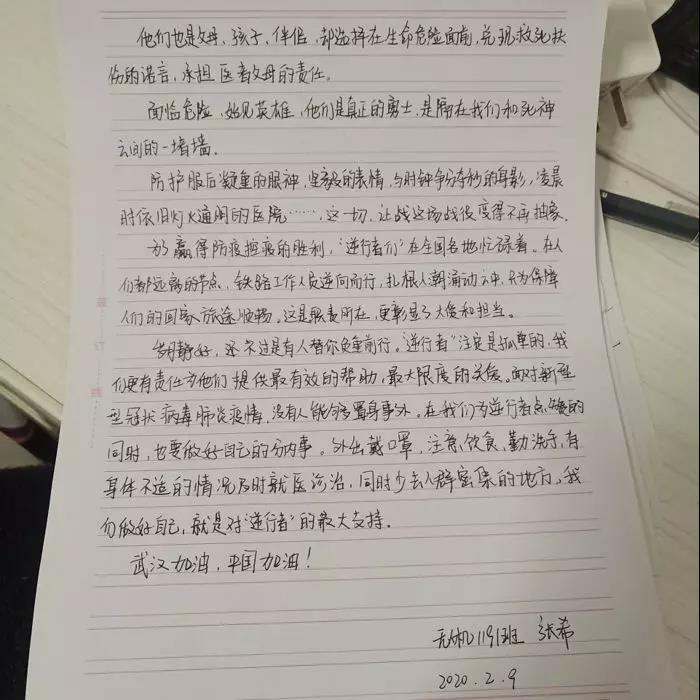 他们也是父母、孩子、伴侣,却选择在生命危险面前,兑现救死扶
伤的诺言,承担医者父母的责任。
面临危险,始见英雄,他们是真正的勇士,是隔在我们和死神
之间的一堵墙。
防护服后凝重的眼神,坚毅的表情,与时钟争分夺秒的身影,凌晨
时依旧灯火通明的医院……,这一切,让战这场战役变得不再抽象。
为赢得防疫控疫的胜利,“逆行者们”在全国各地忙碌着。在人
们都远离的节点,铁路工作人员逆向而行,扎根人潮涌动之中,只为保障
人们的回家旅途顺畅。这是职责所在,更彰显了大爱和担当。
岁月静好,还不过是有人替你负重前行。“逆行者”注定是孤单的,我
们更有责任为他们提供最有效的帮助,最大限度的关爱。面对新型
型冠状病毒肺炎疫情,没有人能够置身事外。在我们为逆行者点赞的
同时,也要做好自己的分内事。外出戴口罩,注意饮食,勤洗手,有
身体不适的情况及时就医诊治,同时少去人群密集的地方。我
们做好自己,就是对“逆行者”的最大支持。
武汉加油,中国加油!
无机1191班 张希
2020.2.9